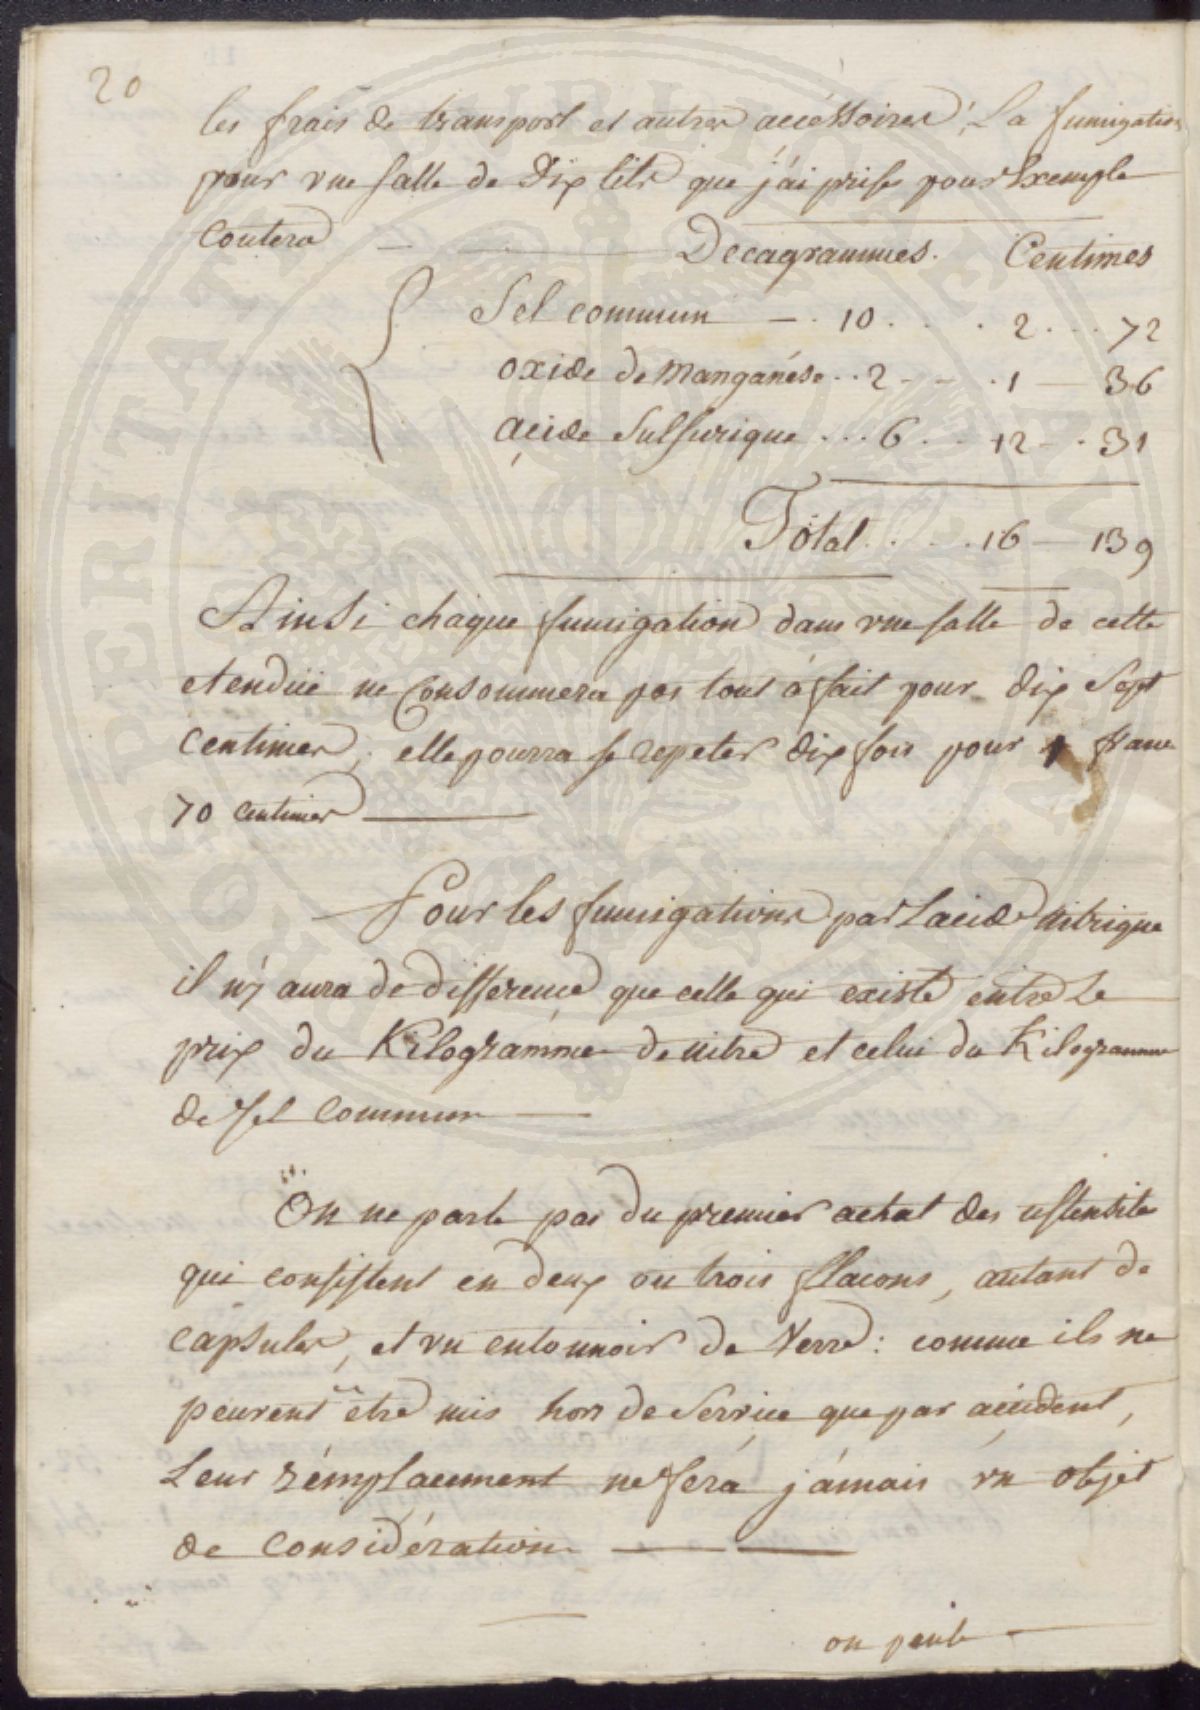 20
les frais de transport et autres accéssoires, La fumigation
pour une salle de Dix lits que j'ai prise pour Exemple
Coutera — — Decagrammes. Centimes
Sel commun — . 10 . . . 2 . . . 72
oxide de Manganése . . 2 - - . 1 — 36
acide Sulfurique . . . 6 . . 12 - . 31
Total . . . . 16 — 139
Ainsi chaque fumigation dans une salle de cette
etenduë ne Consommera pas tout à fait pour dix Sept
Centimes, elle pourra se repeter dix fois pour 1 franc
70 centimes
Pour les fumigations par Lacide nitrique
il n'y aura de difference que celle qui existe entre Le
prix du Kilogramme de nitre et celui du Kilogramme
de Sel Commun
On ne parle pas du premier achat des ustensile
qui consistent en deux ou trois flacons, autant de
Capsules, et un entonnoir de Verre : comme ils ne
peuvent etre mis hors de Service que par accident,
Leur rémplacement ne sera jámais un objet
de Considération
on peut
PROSPERITATI PUBLICAE AUGENDAE